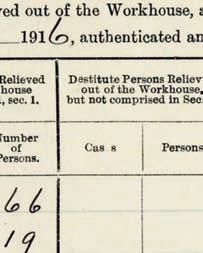 ved out of the Workhouse, a
1916, authenticated an
Relieved
house
, sec. 1.
Destitute Persons Reliev
out of the Workhouse,
but not comprised in Sec
Number
of
Persons.
Cas s
Persons
66
19